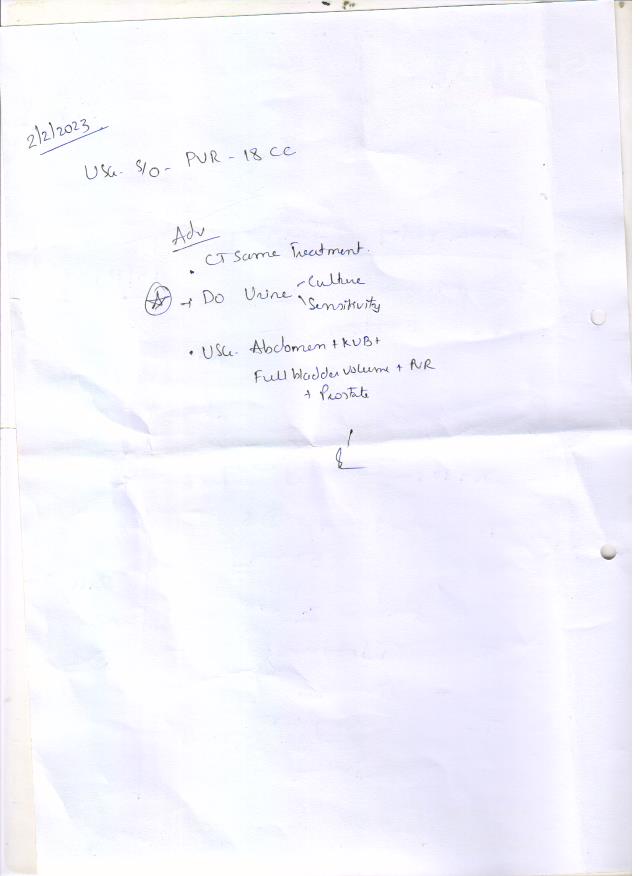 2/2/2023
USG. S/O - PVR - 18 CC
Adv
• CT Same Treatment.
→ Do Urine Culture
Sensitivity
• USG. Abdomen + KUB +
Full bladder volume + PVR
+ Prostate